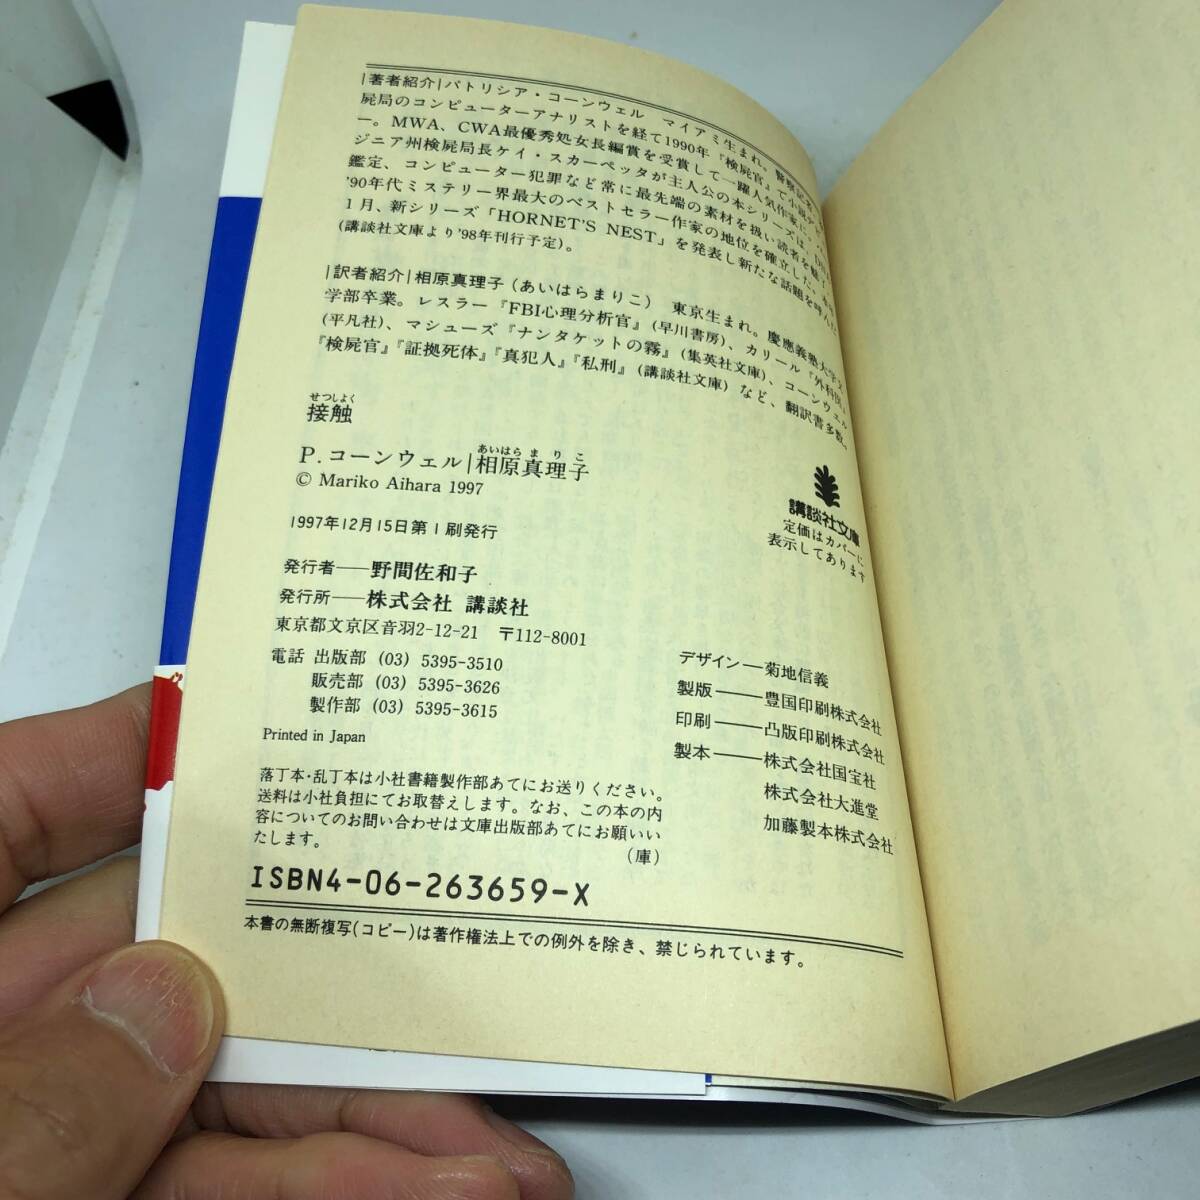 |著者紹介|パトリシア・コーンウェル マイアミ生まれ。警察記者、
屍局のコンピューターアナリストを経て1990年『検屍官』で小説デ
ー。MWA、CWA最優秀処女長編賞を受賞して一躍人気作家に。バ
ジニア州検屍局長ケイ・スカーペッタが主人公の本シリーズは、DNA
鑑定、コンピューター犯罪など常に最先端の素材を扱い読者を魅了
'90年代ミステリー界最大のベストセラー作家の地位を確立した。本年
1月、新シリーズ「HORNET'S NEST」を発表し新たな話題を呼んだ
(講談社文庫より'98年刊行予定)。
|訳者紹介|相原真理子(あいはらまりこ) 東京生まれ。慶應義塾大学文
学部卒業。レスラー『FBI心理分析官』(早川書房)、カリール『外科医』
(平凡社)、マシューズ『ナンタケットの霧』(集英社文庫)、コーンウェル
『検屍官』『証拠死体』『真犯人』『私刑』(講談社文庫)など、翻訳書多数。
せつしよく
接触
あいはらまりこ
P.コーンウェル|相原真理子
© Mariko Aihara 1997
講談社文庫
定価はカバーに
表示してあります
1997年12月15日第1刷発行
発行者——野間佐和子
発行所——株式会社 講談社
東京都文京区音羽2-12-21 〒112-8001
電話 出版部 (03) 5395-3510
販売部 (03) 5395-3626
製作部 (03) 5395-3615
Printed in Japan
デザイン—菊地信義
製版——豊国印刷株式会社
印刷——凸版印刷株式会社
製本——株式会社国宝社
株式会社大進堂
加藤製本株式会社
落丁本・乱丁本は小社書籍製作部あてにお送りください。
送料は小社負担にてお取替えします。なお、この本の内
容についてのお問い合わせは文庫出版部あてにお願いい
たします。
(庫)
ISBN4-06-263659-X
本書の無断複写(コピー)は著作権法上での例外を除き、禁じられています。